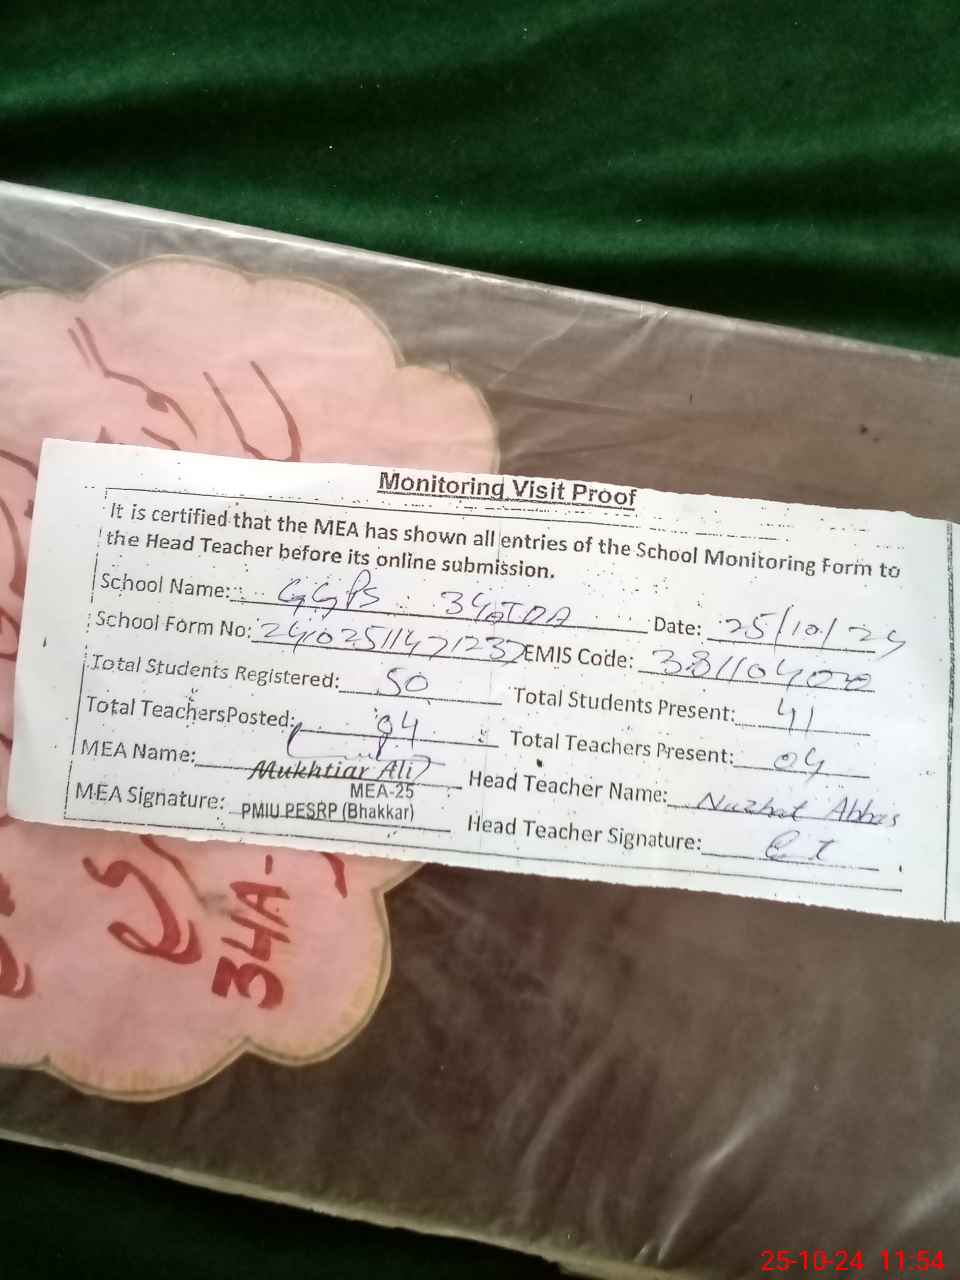 Monitoring Visit Proof
It is certified that the MEA has shown all entries of the School Monitoring Form to
the Head Teacher before its online submission.
School Name: GGPS 34A TDA Date: 25/10/24
School Form No: EMIS Code: 38110400
Total Students Registered: 50 Total Students Present: 41
Total TeachersPosted: 04 Total Teachers Present: 04
MEA Name: Mukhtiar Ali Head Teacher Name: Nuzhat Abbas
MEA-25
MEA Signature: PMIU PESRP (Bhakkar) Head Teacher Signature:
34A-
25-10-24 11:54